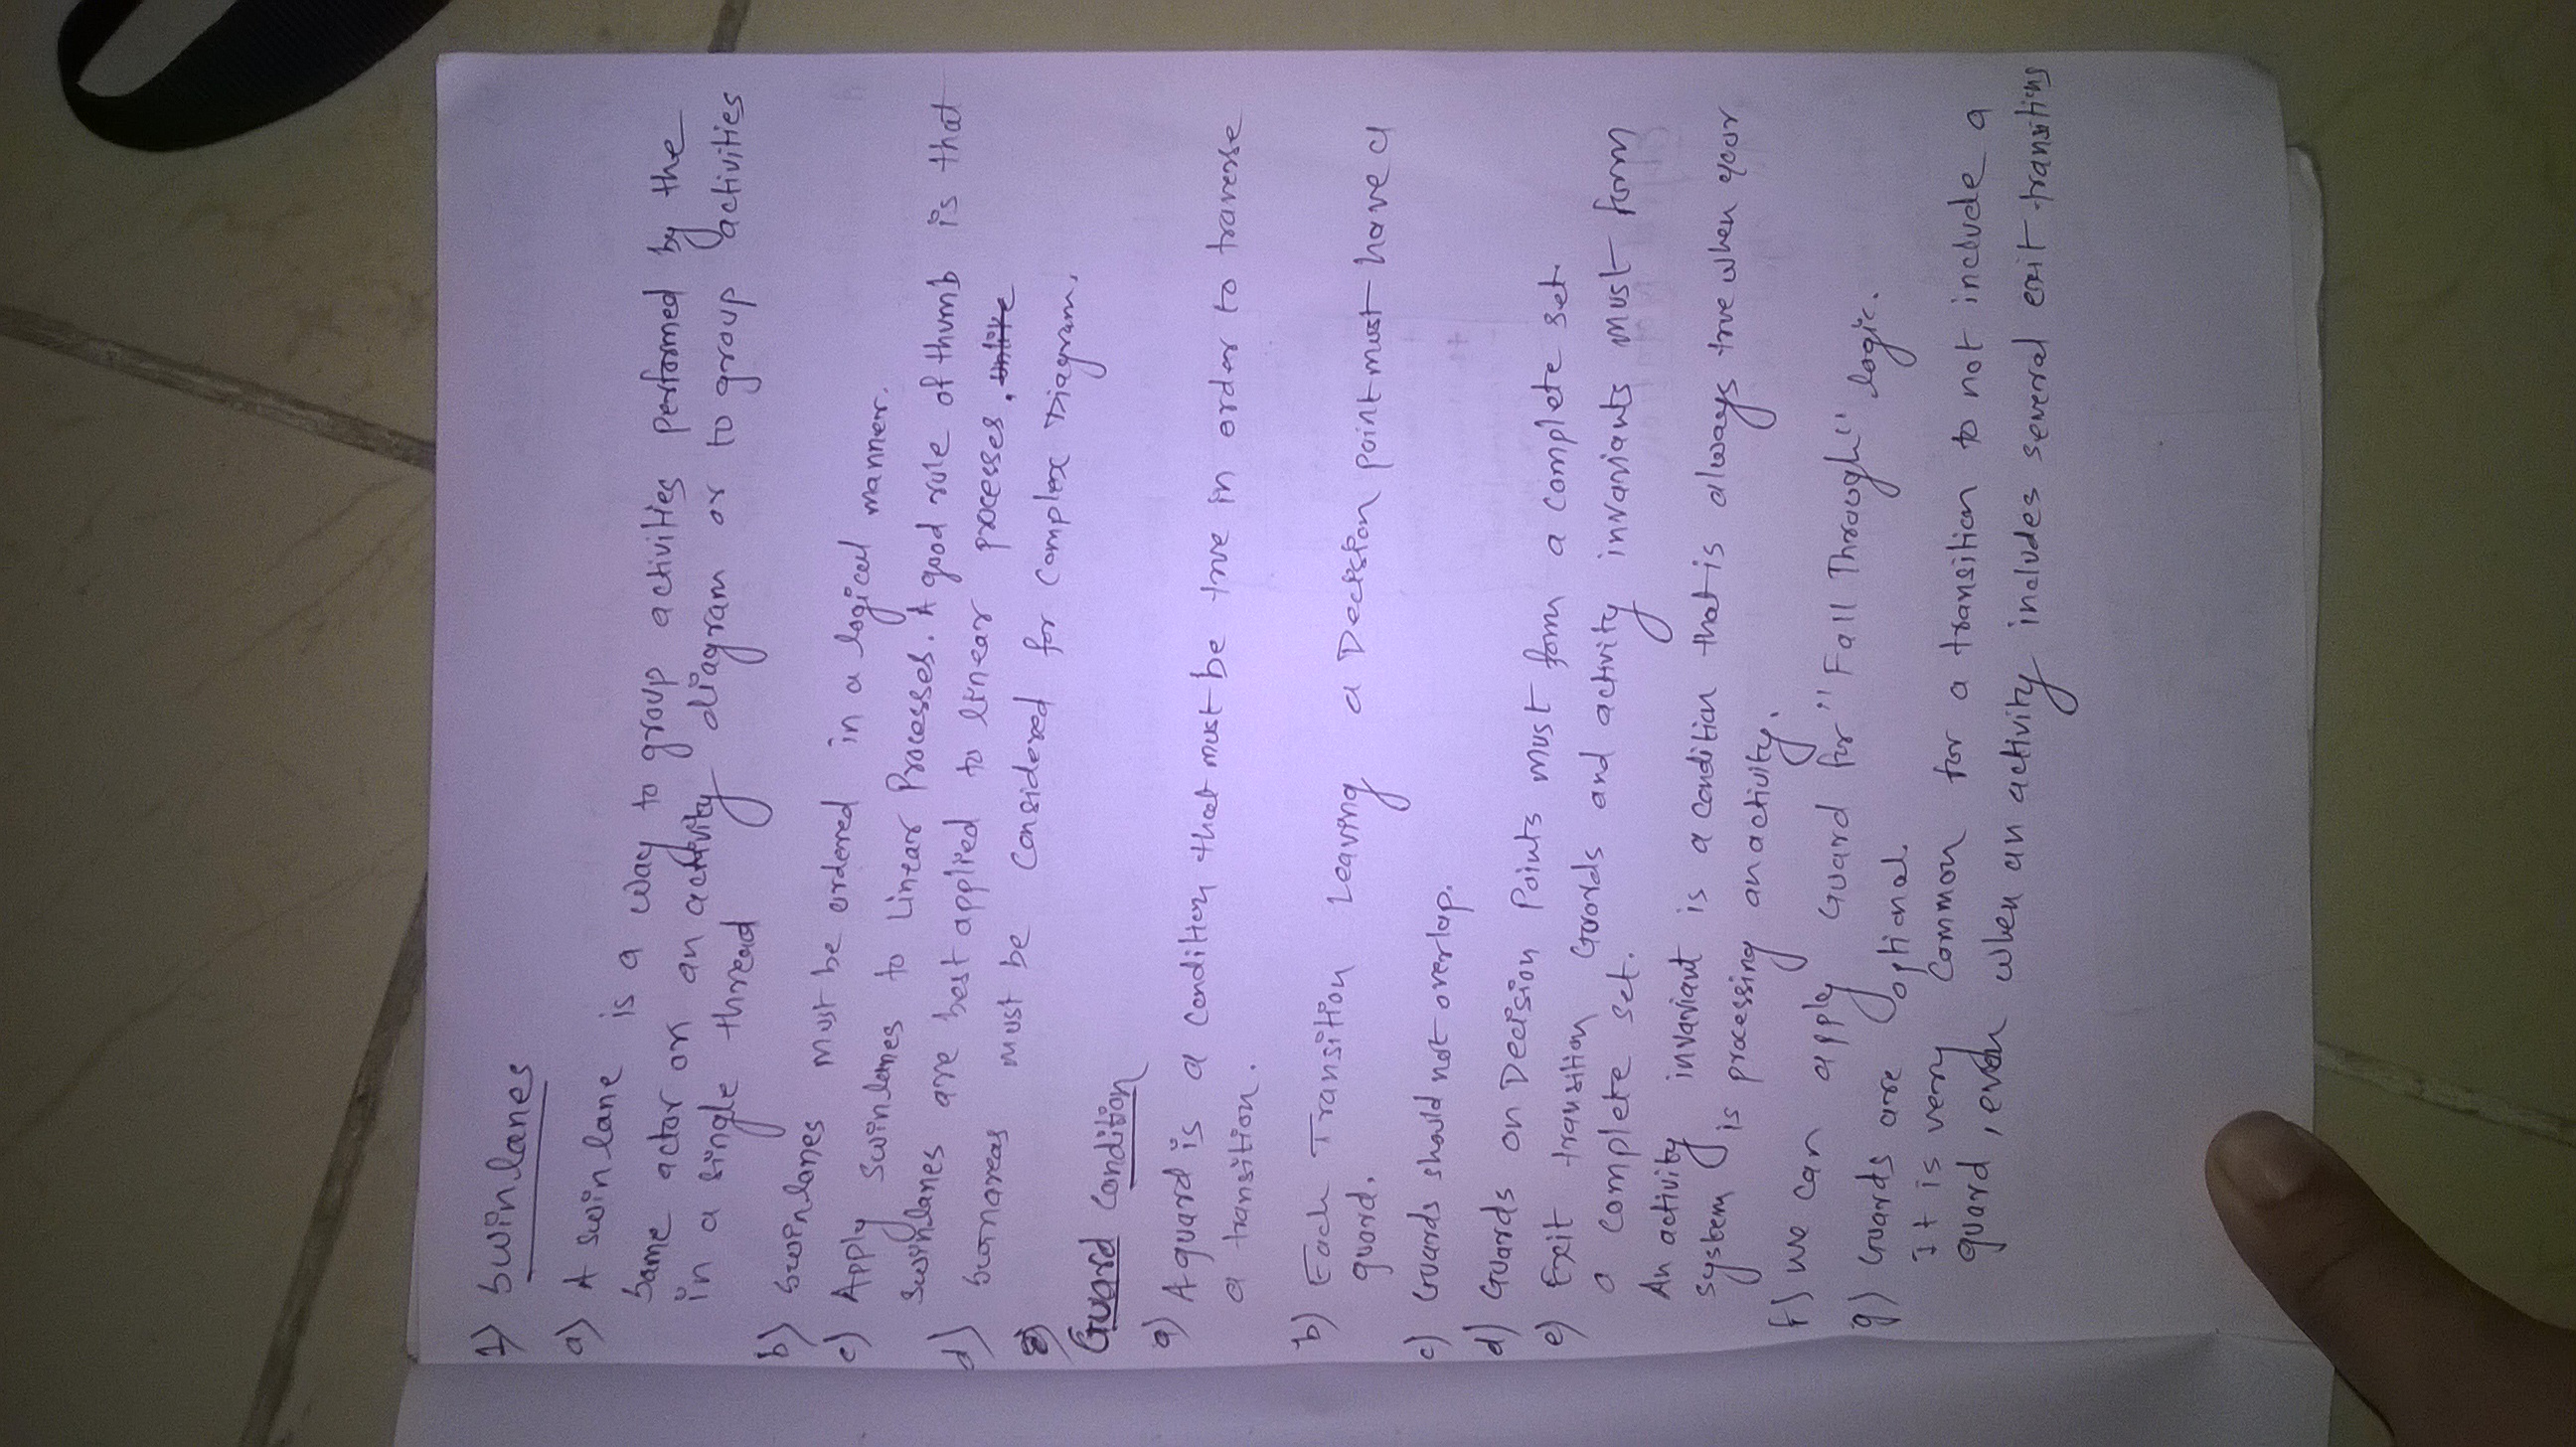 1) Swinlanes
a) A swin lane is a way to group activities performed by the
Same actor on an activity diagram or to group activities
in a single thread
b) Swinlanes must be ordered in a logical manner.
c) Apply swinlanes to Linear Processes. A good rule of thumb is that
Swinlanes are best applied to linear processes.
d) Swinareas must be Considered for Complex Diagram.
Guard Condition
a) A guard is a condition that must be true in order to traverse
a transition.
b) Each Transition Leaving a Decision point must have a
guard.
c) Guards should not overlap.
d) Guards on Decision Points must form a complete set.
e) Exit transition Guards and activity invariants must form
a complete set.
An activity invariant is a condition that is always true when your
system is processing an activity.
f) We can apply Guard for "Fall Through" logic.
g) Guards are optional.
It is very Common for a transition to not include a
guard, even when an activity includes several exit transitions